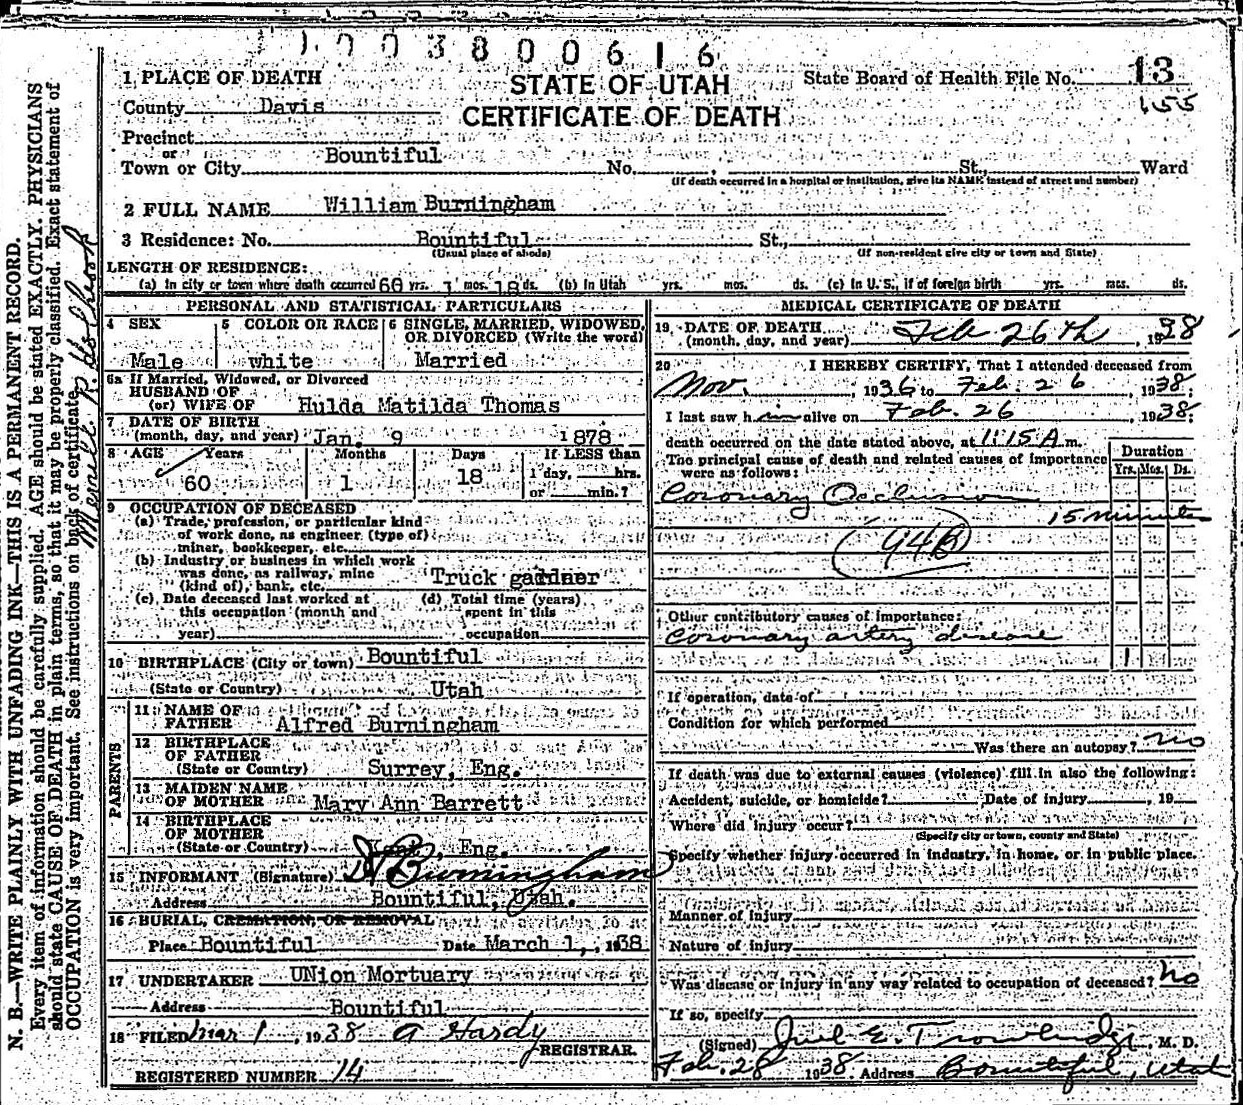 1003800616
1 PLACE OF DEATH
STATE OF UTAH
State Board of Health File No. 13
County Davis
CERTIFICATE OF DEATH
155
Precinct
or
Town or City Bountiful No. St., Ward
(If death occurred in a hospital or institution, give its NAME instead of street and number)
2 FULL NAME William Burningham
3 Residence: No. Bountiful St.,
(Usual place of abode) (If non-resident give city or town and State)
LENGTH OF RESIDENCE:
(a) In city or town where death occurred 60 yrs. 1 mos. 18 ds. (b) In Utah yrs. mos. ds. (c) In U. S., if of foreign birth yrs. mos. ds.
PERSONAL AND STATISTICAL PARTICULARS
4 SEX
Male
5 COLOR OR RACE
white
6 SINGLE, MARRIED, WIDOWED,
OR DIVORCED (Write the word)
Married
6a If Married, Widowed, or Divorced
HUSBAND OF
(or) WIFE OF Hulda Matilda Thomas
7 DATE OF BIRTH
(month, day, and year) Jan. 9 1878
8 AGE Years Months Days If LESS than
60 1 18 1 day, hrs.
or min.?
9 OCCUPATION OF DECEASED
(a) Trade, profession, or particular kind
of work done, as engineer (type of)
miner, bookkeeper, etc.
(b) Industry or business in which work
was done, as railway, mine
(kind of), bank, etc. Truck gardner
(c) Date deceased last worked at
this occupation (month and
year)
(d) Total time (years)
spent in this
occupation
10 BIRTHPLACE (City or town) Bountiful
(State or Country) Utah
PARENTS
11 NAME OF
FATHER Alfred Burningham
12 BIRTHPLACE
OF FATHER
(State or Country) Surrey, Eng.
13 MAIDEN NAME
OF MOTHER Mary Ann Barrett
14 BIRTHPLACE
OF MOTHER
(State or Country) , Eng.
15 INFORMANT (Signature) Burningham
Address Bountiful, Utah.
16 BURIAL, CREMATION, OR REMOVAL
Place Bountiful Date March 1, , 1938
17 UNDERTAKER UNion Mortuary
Address Bountiful
18 FILED Mar 1, 1938 A Hardy
REGISTRAR.
REGISTERED NUMBER 14
MEDICAL CERTIFICATE OF DEATH
19 DATE OF DEATH
(month, day, and year) Feb 26th, 1938
20 I HEREBY CERTIFY, That I attended deceased from
Nov., 1936 to Feb. 26, 1938.
I last saw him alive on Feb. 26, 1938.
death occurred on the date stated above, at 1:15 A.m.
The principal cause of death and related causes of importance
were as follows:
Duration
Yrs. Mos. Ds.
Coronary Occlusion
15 minutes
94B
Other contributory causes of importance:
Coronary artery disease
1
If operation, date of
Condition for which performed
Was there an autopsy? no
If death was due to external causes (violence) fill in also the following:
Accident, suicide, or homicide? Date of injury , 19
Where did injury occur?
(Specify city or town, county and State)
Specify whether injury occurred in industry, in home, or in public place.
Manner of injury
Nature of injury
Was disease or injury in any way related to occupation of deceased? No
If so, specify
(Signed) E. Trowbridge, M. D.
Feb. 28 1938. Address Bountiful, Utah
N. B.—WRITE PLAINLY WITH UNFADING INK—THIS IS A PERMANENT RECORD.
Every item of information should be carefully supplied. AGE should be stated EXACTLY. PHYSICIANS
should state CAUSE OF DEATH in plain terms, so that it may be properly classified. Exact statement of
OCCUPATION is very important. See instructions on back of certificate.
Merrill R. Holbrook